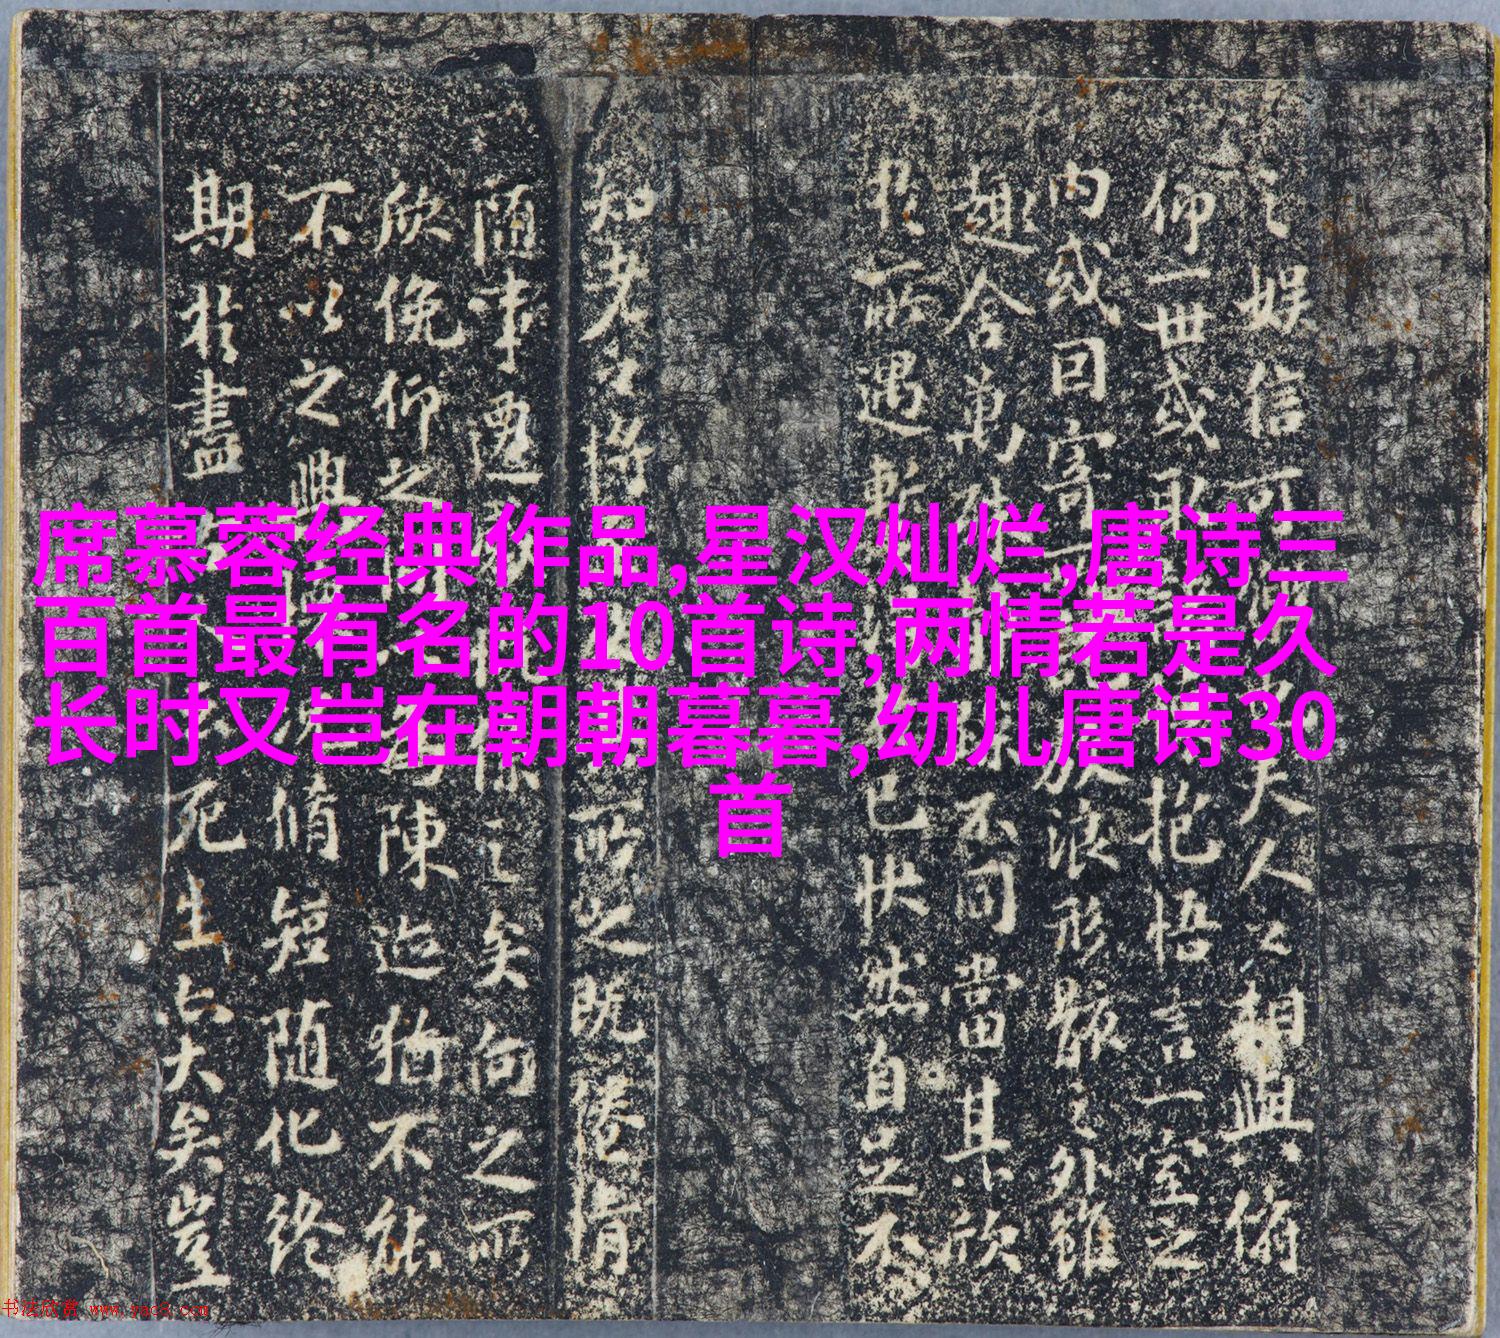 之娛信可夫人之相與俯
仰一世或取抱悟言一室之
內或因寄放浪形骸之外雖
趣舍萬不同當其欣
於所遇暫己快然自足不
知老之將所之既惓情
隨事遷之矣向之所
欣俛仰之陳迹猶不能
不以之興脩短隨化終
期於盡死生亦大矣豈
席慕蓉经典作品,星汉灿烂,唐诗三
百首最有名的10首诗,两情若是久
长时又岂在朝朝暮暮,幼儿唐诗30
首
书法欣赏 www.yac8.com